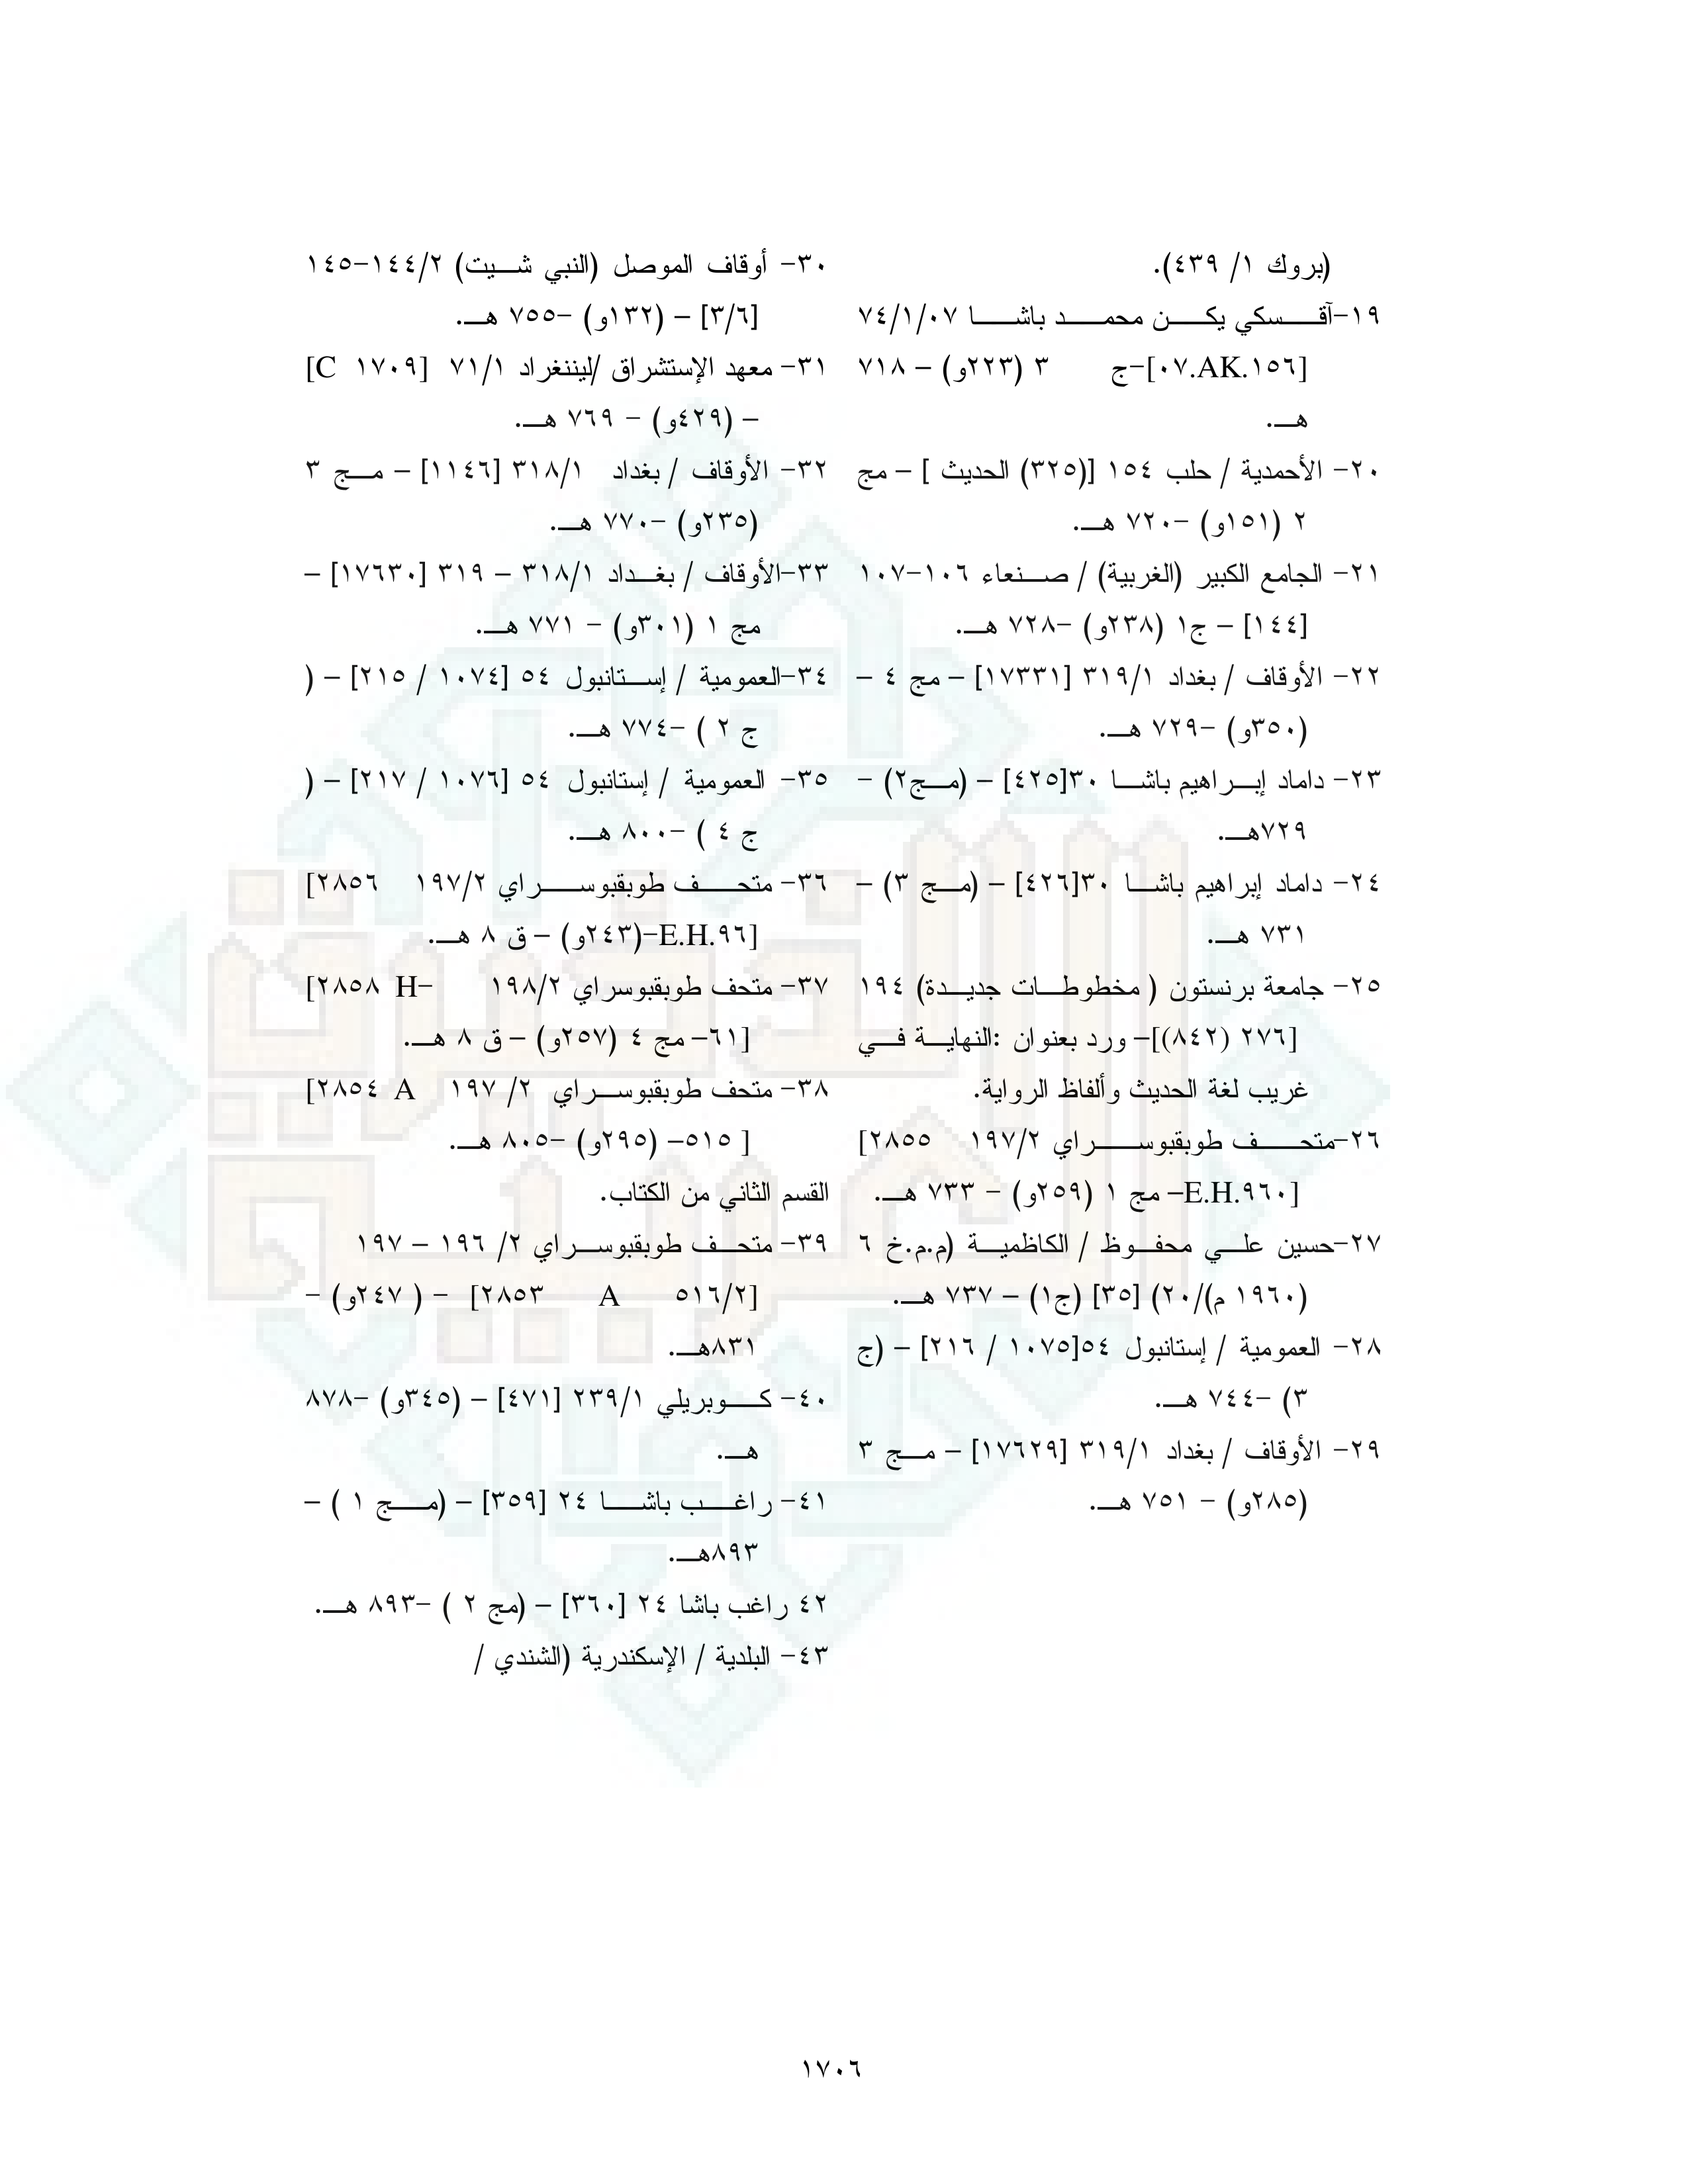 (بروك ١/ ٤٣٩).
١٩-آقسكي يكن محمد باشا ٧٤/١/٠٧
[٠٧.AK.١٥٦]-ج ٣ (٢٢٣و) – ٧١٨
هـ.
٢٠- الأحمدية / حلب ١٥٤ [(٣٢٥) الحديث ] – مج
٢ (١٥١و) -٧٢٠ هـ.
٢١- الجامع الكبير (الغربية) / صنعاء ١٠٦-١٠٧
[١٤٤] – ج١ (٢٣٨و) -٧٢٨ هـ.
٢٢- الأوقاف / بغداد ٣١٩/١ [١٧٣٣١] – مج ٤ –
(٣٥٠و) -٧٢٩ هـ.
٢٣- داماد إبراهيم باشا ٣٠[٤٢٥] – (مج٢) –
٧٢٩هـ.
٢٤- داماد إبراهيم باشا ٣٠[٤٢٦] – (مج ٣) –
٧٣١ هـ.
٢٥- جامعة برنستون ( مخطوطات جديدة) ١٩٤
[٢٧٦ (٨٤٢)]– ورد بعنوان :النهاية في
غريب لغة الحديث وألفاظ الرواية.
٢٦-متحف طوبقبوسراي ١٩٧/٢ [٢٨٥٥
E.H.٩٦٠]– مج ١ (٢٥٩و) – ٧٣٣ هـ.
٢٧-حسين علي محفوظ / الكاظمية (م.م.خ ٦
(١٩٦٠ م)/٢٠) [٣٥] (ج١) – ٧٣٧ هـ.
٢٨- العمومية / إستانبول ٥٤[١٠٧٥ / ٢١٦] – (ج
٣) -٧٤٤ هـ.
٢٩- الأوقاف / بغداد ٣١٩/١ [١٧٦٢٩] – مج ٣
(٢٨٥و) – ٧٥١ هـ.
٣٠- أوقاف الموصل (النبي شيت) ١٤٤/٢-١٤٥
[٣/٦] – (١٣٢و) -٧٥٥ هـ.
٣١- معهد الإستشراق /ليننغراد ٧١/١ [C ١٧٠٩]
– (٤٢٩و) – ٧٦٩ هـ.
٣٢- الأوقاف / بغداد ٣١٨/١ [١١٤٦] – مج ٣
(٢٣٥و) -٧٧٠ هـ.
٣٣-الأوقاف / بغداد ٣١٨/١ – ٣١٩ [١٧٦٣٠] –
مج ١ (٣٠١و) – ٧٧١ هـ.
٣٤-العمومية / إستانبول ٥٤ [١٠٧٤ / ٢١٥] – (
ج ٢ ) -٧٧٤ هـ.
٣٥- العمومية / إستانبول ٥٤ [١٠٧٦ / ٢١٧] – (
ج ٤ ) -٨٠٠ هـ.
٣٦- متحف طوبقبوسراي ١٩٧/٢ [٢٨٥٦
E.H.٩٦]-(٢٤٣و) – ق ٨ هـ.
٣٧- متحف طوبقبوسراي ١٩٨/٢ [٢٨٥٨ H-
٦١]– مج ٤ (٢٥٧و) – ق ٨ هـ.
٣٨- متحف طوبقبوسراي ٢/ ١٩٧ [٢٨٥٤ A
٥١٥ ]– (٢٩٥و) -٨٠٥ هـ.
القسم الثاني من الكتاب.
٣٩- متحف طوبقبوسراي ٢/ ١٩٦ – ١٩٧
[٢٨٥٣ A ٥١٦/٢] – ( ٢٤٧و) –
٨٣١هـ.
٤٠- كوبريلي ٢٣٩/١ [٤٧١] – (٣٤٥و) -٨٧٨
هـ.
٤١- راغب باشا ٢٤ [٣٥٩] – (مج ١ ) –
٨٩٣هـ.
٤٢ راغب باشا ٢٤ [٣٦٠] – (مج ٢ ) -٨٩٣ هـ.
٤٣- البلدية / الإسكندرية (الشندي /
١٧٠٦